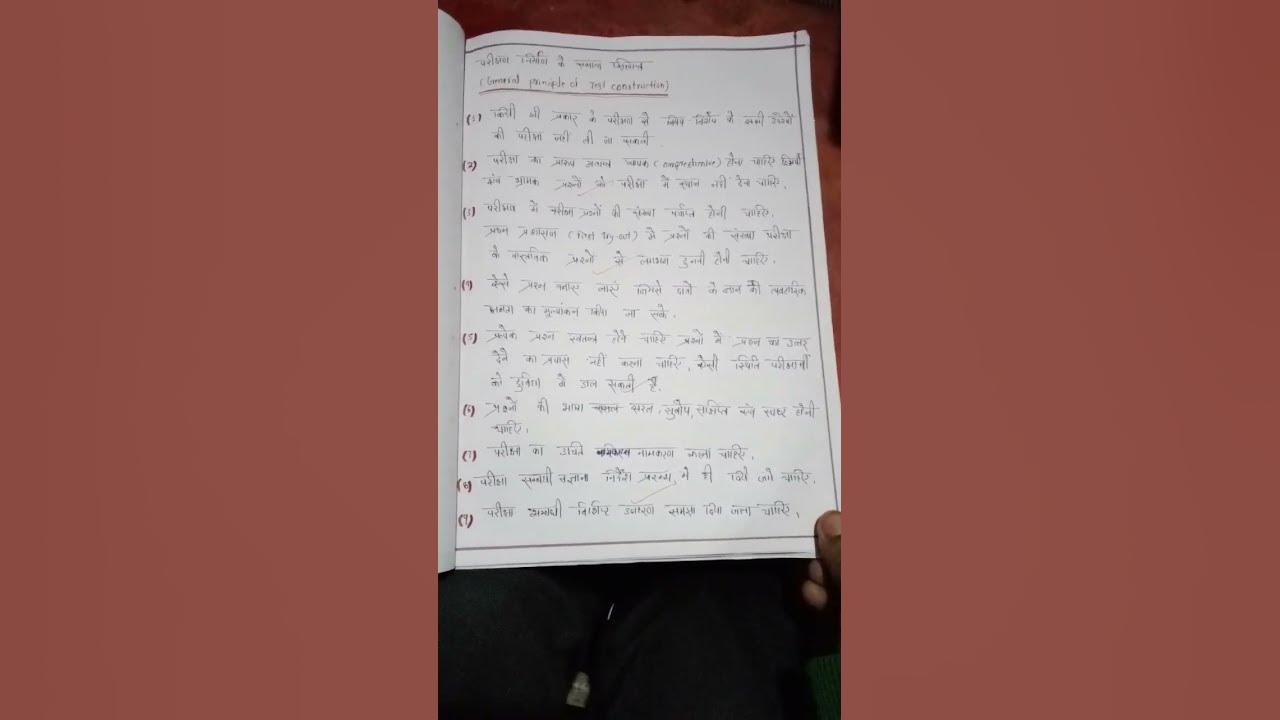 परीक्षण निर्माण के सामान्य सिद्धान्त
(General principle of Test construction)
(1) किसी भी प्रकार के परीक्षण से विषय विशेष के सभी उद्देश्यों
की परीक्षा नहीं ली जा सकती
(2) परीक्षा का प्रारूप अत्यन्त व्यापक (comprehensive) होना चाहिए
एवं भ्रामक प्रश्नों को परीक्षा में स्थान नहीं देना चाहिए,
(3) परीक्षण में परीक्षा प्रश्नों की संख्या पर्याप्त होनी चाहिए,
प्रथम प्रशासन (First Try-out) में प्रश्नों की संख्या परीक्षा
के वास्तविक प्रश्नों से लगभग दुगनी होनी चाहिए,
(4) प्रश्न बनाए जाएं जिससे छात्रों के ज्ञान की व्यवहारिक
का मूल्यांकन किया जा सके,
(5) प्रत्येक प्रश्न स्वतन्त्र होने चाहिए प्रश्नों में प्रश्न का उत्तर
देने का प्रयास नहीं करना चाहिए, स्थिति परीक्षार्थी
को दुविधा में डाल सकती है,
(6) प्रश्नों की भाषा सरल, सुबोध, संक्षिप्त एवं स्पष्ट होनी
चाहिए,
(7) परीक्षा का उचित नामकरण करना चाहिए,
(8) परीक्षा सम्बन्धी निर्देश प्रारम्भ में ही दिये जाने चाहिए,
(9) परीक्षा विशिष्ट समस्या दिया जाना चाहिए,